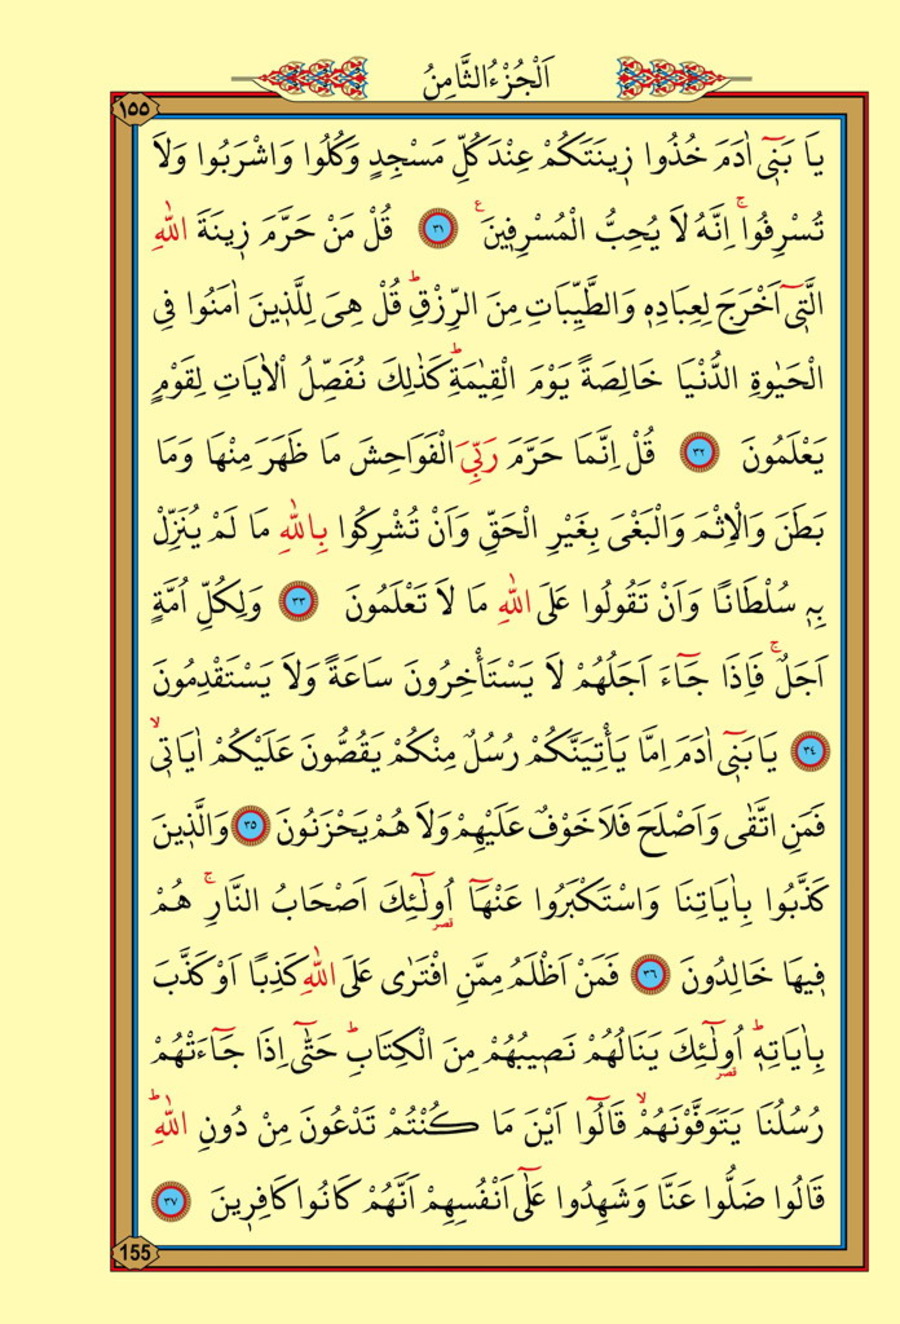 اَلْجُزْءُ الثَّامِنُ
١٥٥
يَا بَنٖٓى اٰدَمَ خُذُوا زٖينَتَكُمْ عِنْدَ كُلِّ مَسْجِدٍ وَكُلُوا وَاشْرَبُوا وَلَا
تُسْرِفُواۚ اِنَّهُ لَا يُحِبُّ الْمُسْرِفٖينَࣖ ٣١ قُلْ مَنْ حَرَّمَ زٖينَةَ اللّٰهِ
الَّتٖٓى اَخْرَجَ لِعِبَادِهٖ وَالطَّيِّبَاتِ مِنَ الرِّزْقِؕ قُلْ هِىَ لِلَّذٖينَ اٰمَنُوا فِى
الْحَيٰوةِ الدُّنْيَا خَالِصَةً يَوْمَ الْقِيٰمَةِؕ كَذٰلِكَ نُفَصِّلُ الْاٰيَاتِ لِقَوْمٍ
يَعْلَمُونَ ٣٢ قُلْ اِنَّمَا حَرَّمَ رَبِّىَ الْفَوَاحِشَ مَا ظَهَرَ مِنْهَا وَمَا
بَطَنَ وَالْاِثْمَ وَالْبَغْىَ بِغَيْرِ الْحَقِّ وَاَنْ تُشْرِكُوا بِاللّٰهِ مَا لَمْ يُنَزِّلْ
بِهٖ سُلْطَانًا وَاَنْ تَقُولُوا عَلَى اللّٰهِ مَا لَا تَعْلَمُونَ ٣٣ وَلِكُلِّ اُمَّةٍ
اَجَلٌۚ فَاِذَا جَٓاءَ اَجَلُهُمْ لَا يَسْتَأْخِرُونَ سَاعَةً وَلَا يَسْتَقْدِمُونَ
٣٤ يَا بَنٖٓى اٰدَمَ اِمَّا يَأْتِيَنَّكُمْ رُسُلٌ مِنْكُمْ يَقُصُّونَ عَلَيْكُمْ اٰيَاتٖىۙ
فَمَنِ اتَّقٰى وَاَصْلَحَ فَلَا خَوْفٌ عَلَيْهِمْ وَلَا هُمْ يَحْزَنُونَ ٣٥ وَالَّذٖينَ
كَذَّبُوا بِاٰيَاتِنَا وَاسْتَكْبَرُوا عَنْهَٓا اُو۬لٰٓئِكَ اَصْحَابُ النَّارِۚ هُمْ
قصر
فٖيهَا خَالِدُونَ ٣٦ فَمَنْ اَظْلَمُ مِمَّنِ افْتَرٰى عَلَى اللّٰهِ كَذِبًا اَوْ كَذَّبَ
بِاٰيَاتِهٖؕ اُو۬لٰٓئِكَ يَنَالُهُمْ نَصٖيبُهُمْ مِنَ الْكِتَابِؕ حَتّٰٓى اِذَا جَٓاءَتْهُمْ
قصر
رُسُلُنَا يَتَوَفَّوْنَهُمْۙ قَالُٓوا اَيْنَ مَا كُنْتُمْ تَدْعُونَ مِنْ دُونِ اللّٰهِؕ
قَالُوا ضَلُّوا عَنَّا وَشَهِدُوا عَلٰٓى اَنْفُسِهِمْ اَنَّهُمْ كَانُوا كَافِرٖينَ ٣٧
155